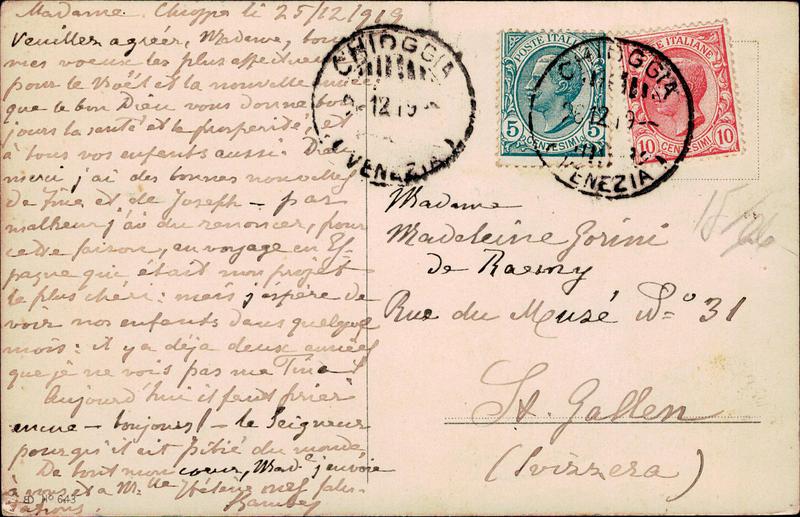 Madame. Chioggia li 25/12/1919
Veuillez agréer, Madame, tous
mes voeux les plus affectueux
pour le Noël et la nouvelle année
que le bon Dieu vous donne tou-
jours la santé et la prosperité, et
à tous vos enfants aussi. Dieu
merci j'ai des bonnes nouvelles
de Tina et de Joseph - par
malheur j'ai du renoncer, pour
cette saison, au voyage en Es-
pagne que était mon projet
le plus chéri: mais j'espère de
voir nos enfants dans quelque
mois: il y a déja deux années
que je ne vois pas ma Tina!
Aujourd'hui il faut prier
encue - toujours! - le Seigneur
pourqu'il ait pitié du monde.
De tout mon coeur, Mad.e j'envoie
à vous et à M.lle Hélène mes salu-
tations.
ED No 643
CHIOGGIA
12.19
(VENEZIA)
POSTE ITALIANE
5 CENTESIMI 5
CHIOGGIA
12.19
VENEZIA
POSTE ITALIANE
10 CENTESIMI 10
15/
Madame
Madeleine Gorini
de Raemy
Rue du Musé No 31
St. Gallen
(Svizzera)